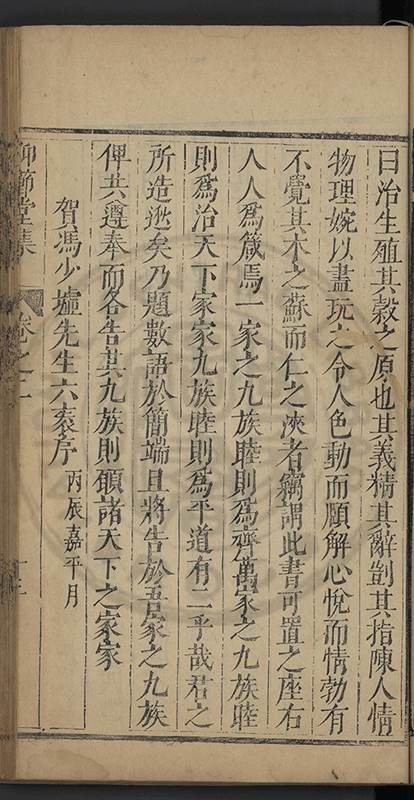 曰治生殖其穀之原也其義精其辭剴其指陳人情
物理婉以盡玩之令人色動而頤解心悅而情勃有
不覺其木之蘇而仁之浹者竊謂此書可置之座右
人人為箴焉一家之九族睦則為齊萬家之九族睦
則為治天下家家九族睦則為平道有二乎哉君之
所造遠矣乃題數語於簡端且將告於吾家之九族
俾共遵奉而各告其九族則頒諸天下之家家
賀馮少墟先生六袠序 丙辰嘉平月
仰節堂集 卷之二